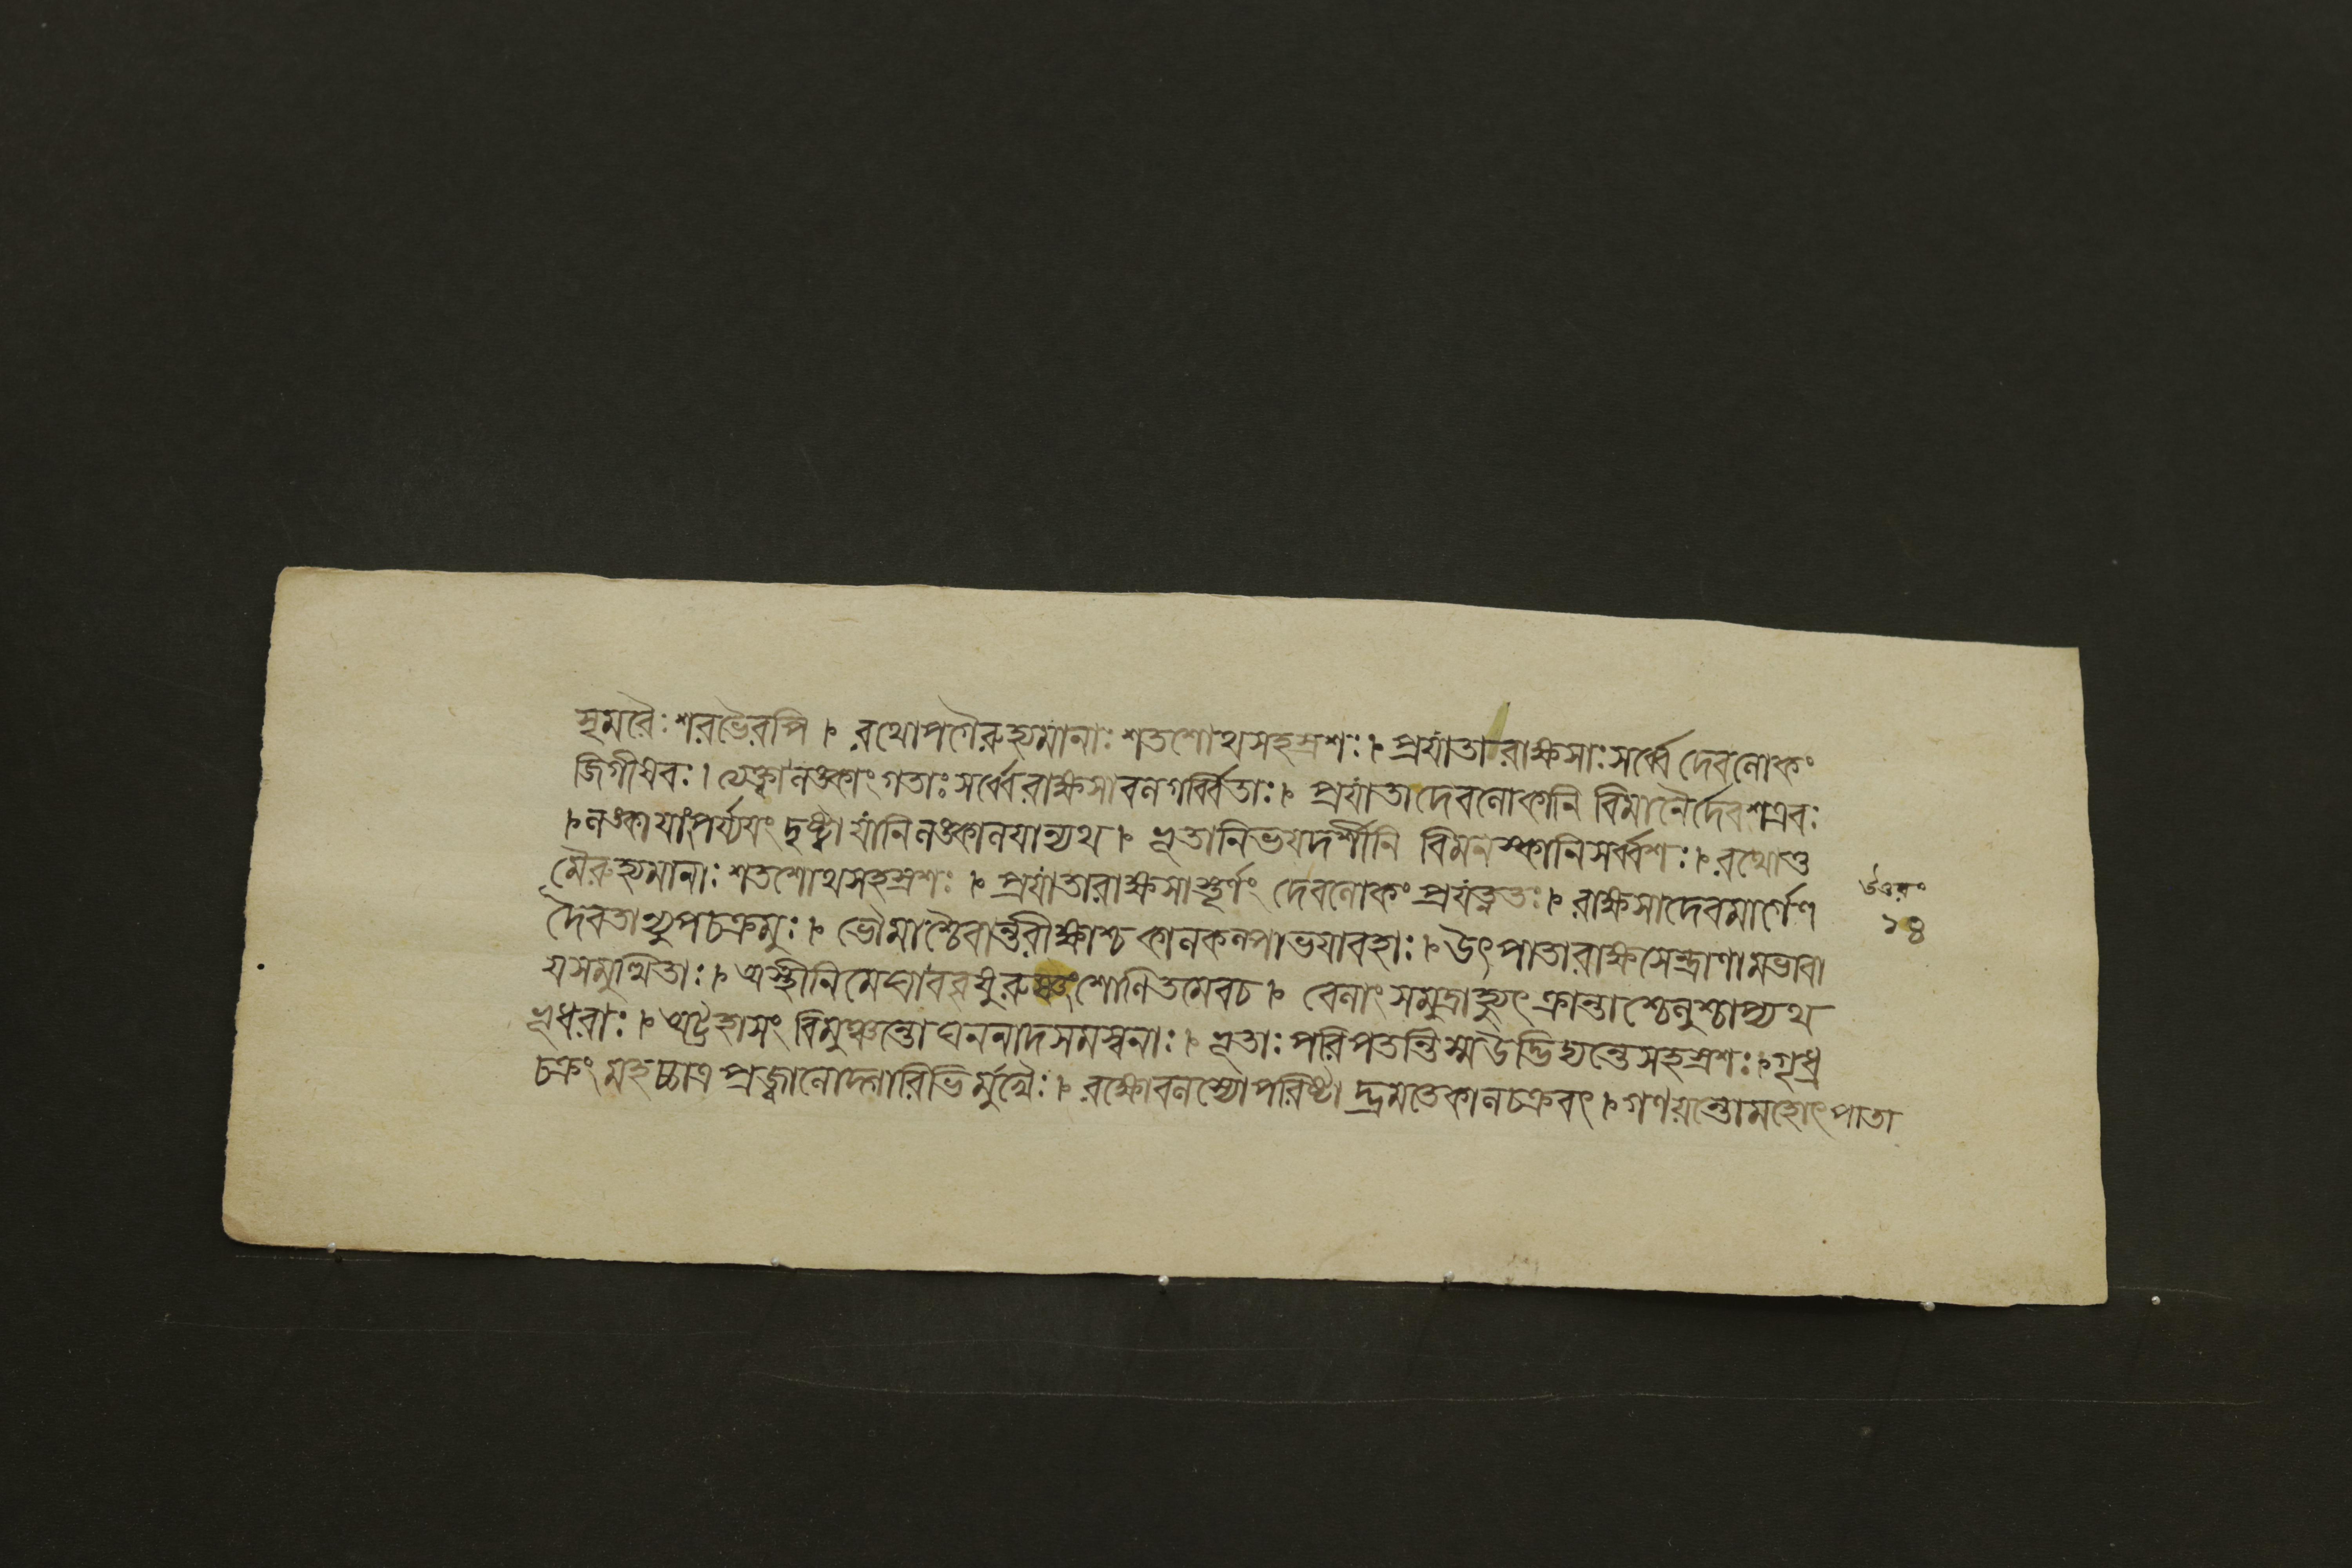 সৃমরৈঃ শরভৈরপি । রথোপগৈরুহ্যমানাঃ শতশোথসহস্রশঃ । প্রযাতা রাক্ষসাঃ সর্ব্বে দেবলোকং
জিগীষবঃ । ত্যেক্ত্বালঙ্কাংগতাঃ সর্ব্বেরাক্ষসাবলগর্ব্বিতাঃ । প্রযাতাদেবলোকানি বিমানৈর্দেবশত্রবঃ
। লঙ্কাযাংপর্য্যযং দৃষ্ট্বা যানিলঙ্কালযান্যথ । ভূতানিভযদর্শীনি বিমনস্কানিসর্ব্বশঃ । রথোত্ত
মৈরুহ্যমানাঃ শতশোথসহস্রশঃ । প্রযাতারাক্ষসাস্তূর্ণং দেবলোকং প্রযত্নতঃ । রাক্ষসাদেবমার্গেণ
দৈবতান্যুপচক্রমুঃ । ভৌমাশ্চৈবান্তরীক্ষাশ্চ কালকল্পাভযাবহাঃ । উৎপাতারাক্ষসেন্দ্রাণামভাবা
যসমুত্থিতাঃ । অস্থীনিমেঘাববৃষুরুষ্ণংশোণিতমেবচ । বেলাং সমুদ্রাহ্যুৎক্রান্তাশ্চেলুশ্চাপ্যথ
ভূধরাঃ । অট্টহাসং বিমুঞ্চন্তোঘননাদসমস্বনাঃ । ভূতাঃ পরিপতন্তিস্মউত্তিদ্যন্তেসহস্রশঃ । গৃধ্র
চক্রং মহচ্চাত্র প্রজ্বালোদ্গারিভির্মুখৈঃ । রক্ষোবলস্যোপরিষ্টাদ্ভ্রমতেকালচক্রবৎ । গণয়ন্তোমহোৎপাতা
উত্তরং
১৪